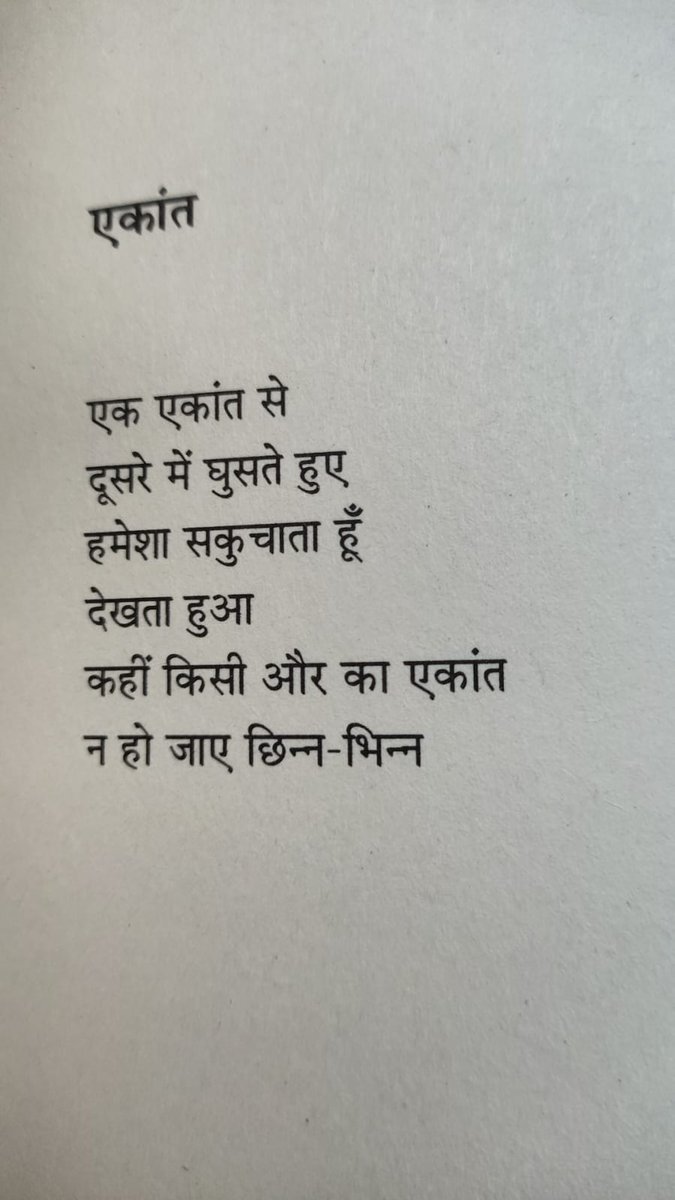 एकांत
एक एकांत से
दूसरे में घुसते हुए
हमेशा सकुचाता हूँ
देखता हुआ
कहीं किसी और का एकांत
न हो जाए छिन्न-भिन्न